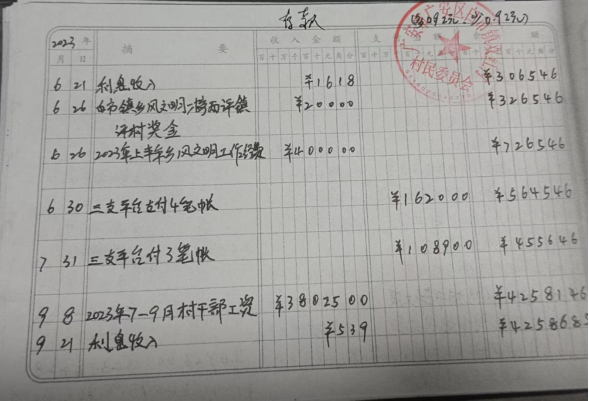 存款
2023年 摘要 收入金额 支 额
月 日 百十万千百十元角分
6 21 利息收入 ¥1618 ¥306546
6 26 白市镇乡风文明 ¥20000 ¥326546
评村奖金
6 26 2023年上半年乡风文明工作经费 ¥400000 ¥726546
6 30 三支平台支付4笔帐 ¥162000 ¥564546
7 31 三支平台付3笔帐 ¥108900 ¥455646
9 8 2023年7-9月村干部工资 ¥3802500 ¥4258146
9 21 利息收入 ¥539 ¥4258685
村民委员会